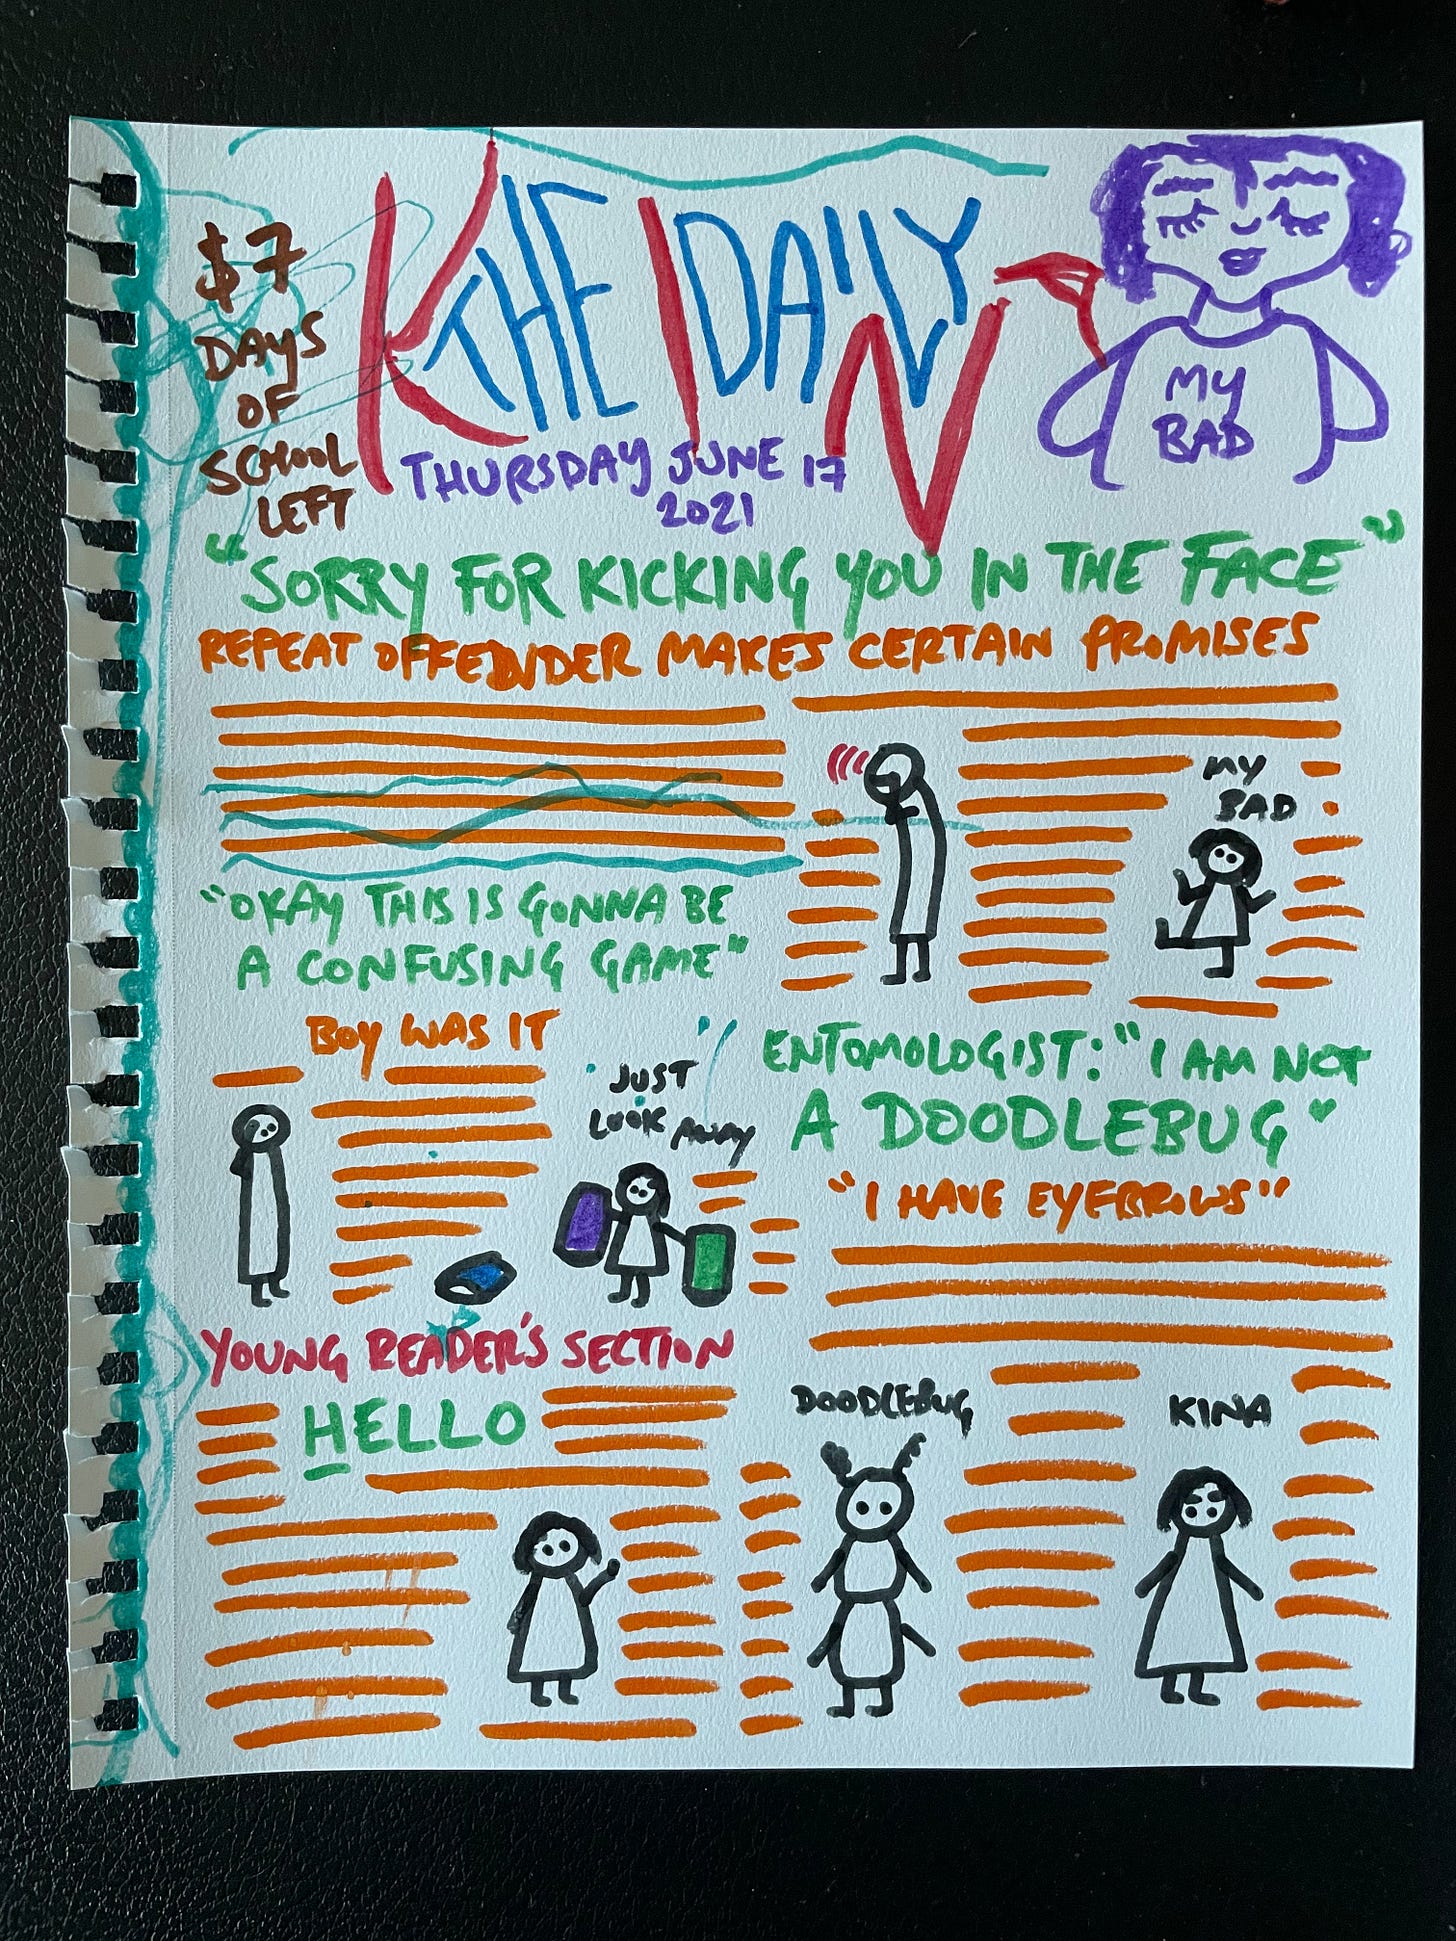 $7
DAYS
OF
SCHOOL
LEFT
THE DAILY
KINA
THURSDAY JUNE 17
2021
MY
BAD
"SORRY FOR KICKING YOU IN THE FACE"
REPEAT OFFENDER MAKES CERTAIN PROMISES
MY
BAD
"OKAY THIS IS GONNA BE
A CONFUSING GAME"
BOY WAS IT
JUST
LOOK AWAY
ENTOMOLOGIST: "I AM NOT
A DOODLEBUG"
"I HAVE EYEBROWS"
YOUNG READER'S SECTION
HELLO
DOODLEBUG
KINA